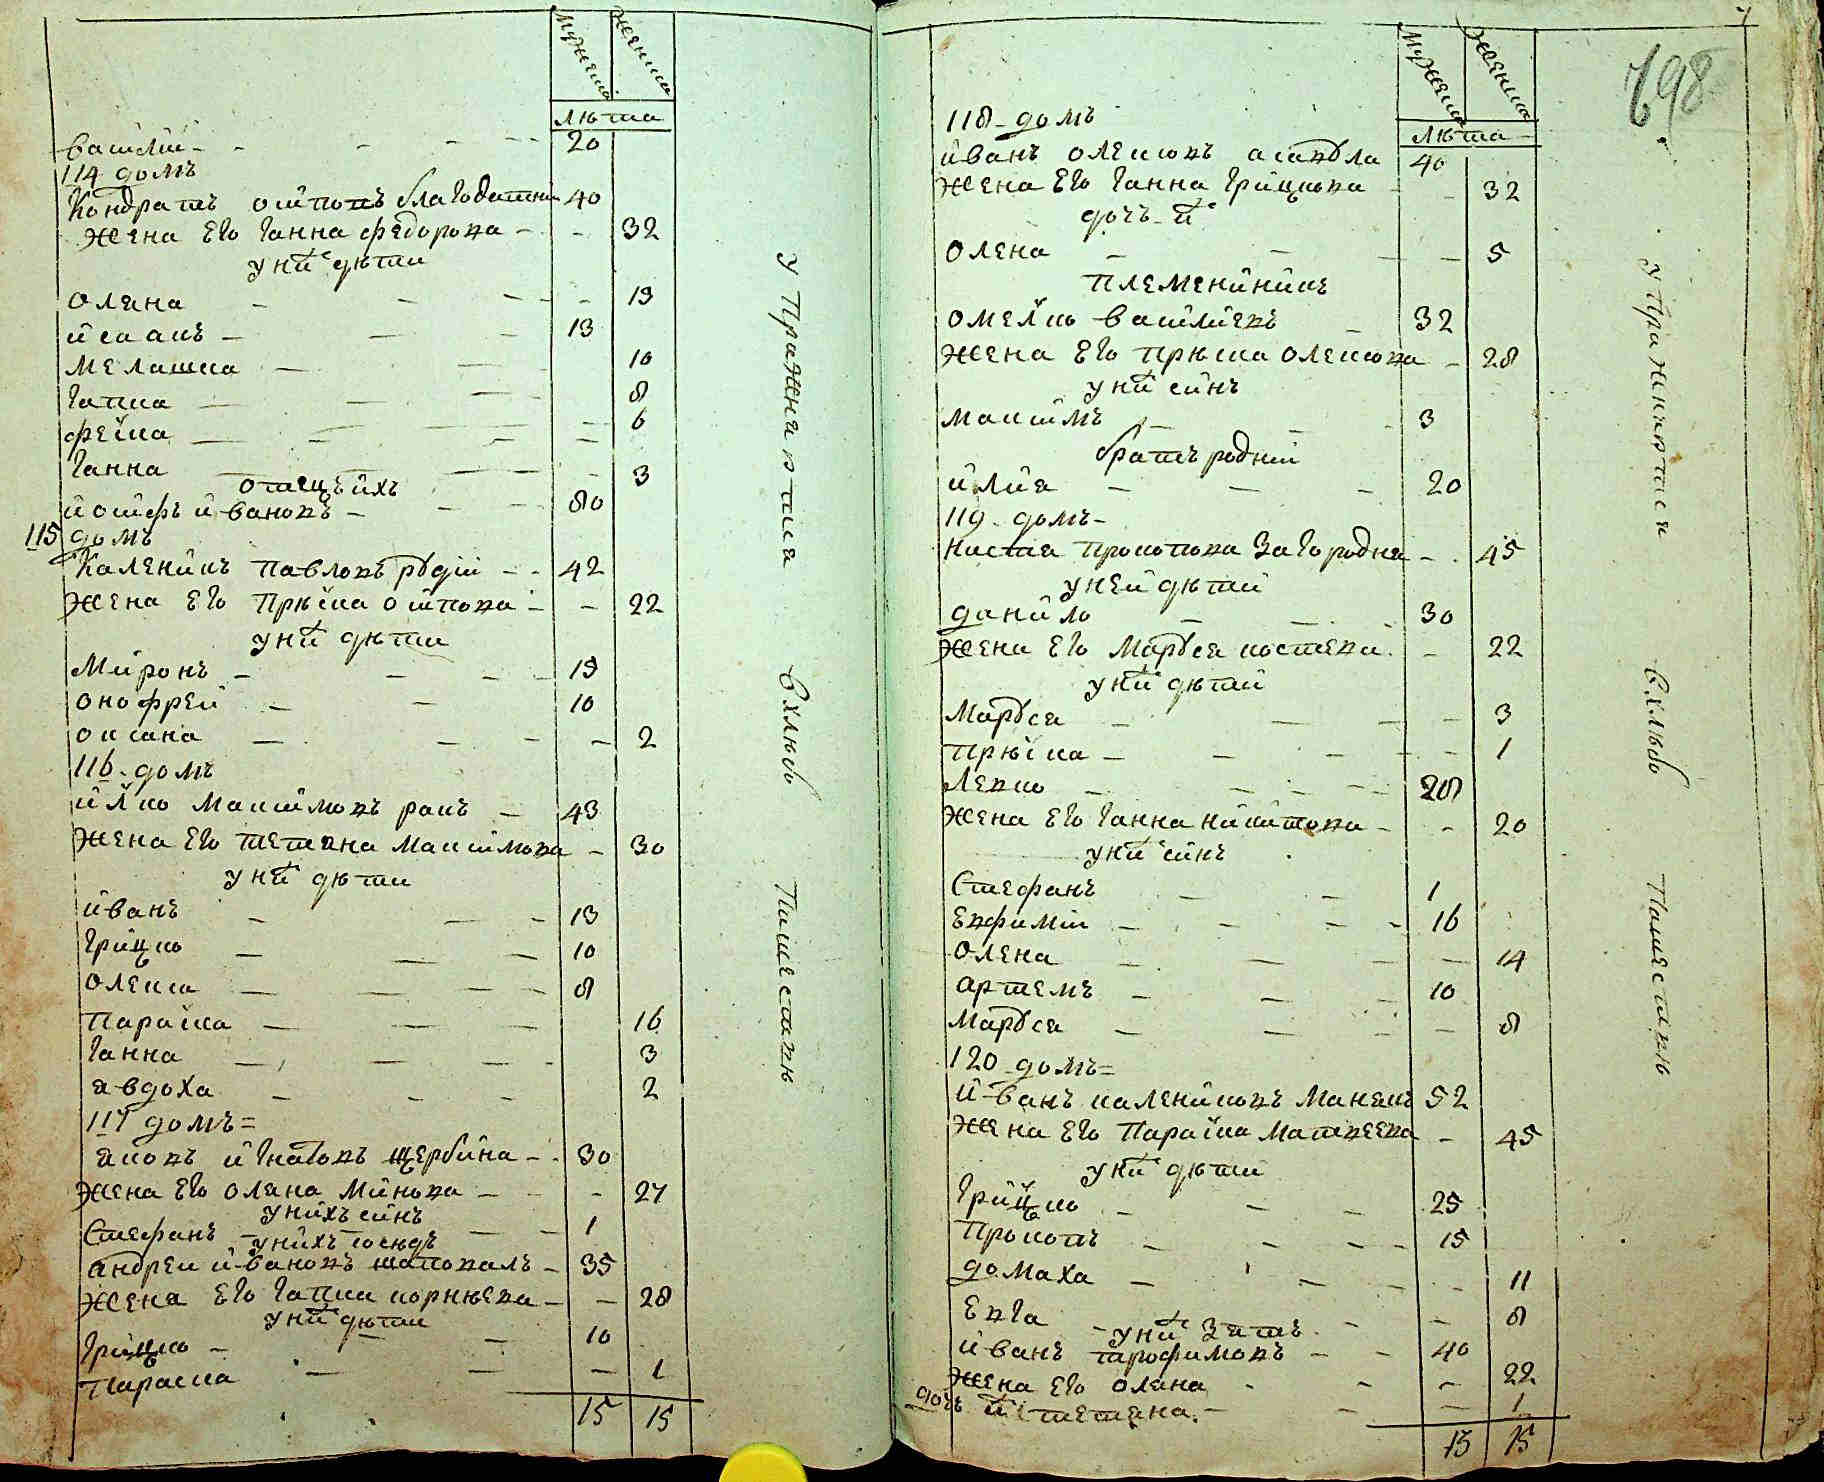 мужеска женска
лѣта
василій 20
114 домъ
Кондратъ осиповъ благодатни 40
жена его ганна федорова 32
у них дѣти
олена 13
исаакъ 13
мелашка 10
гапка 8
феска 6
ганна 3
отецъ ихъ
иосифъ ивановъ 80
115 домъ
Каленикъ павловъ рудій 42
жена его прѣска осипова 22
у них дѣти
Миронъ 15
онофрей 10
оксана 2
116 домъ
илко Максимовъ ракъ 43
жена его тетяна Максимова 30
у них дѣти
иванъ 13
грицко 10
олекса 8
параска 16
ганна 3
явдоха 2
117 домъ
яковъ игнатовъ щербина 30
жена его олена Минова 27
у нихъ синъ
Стефанъ 1
у нихъ сосѣдъ
андреи ивановъ шаповалъ 35
жена его гапка корнѣева 28
у них дѣти
грицко 10
параска 1
15 15
у пражнентися
в хлѣбо
пашествѣ
698
мужеска женска
лѣта
118 домъ
иванъ олексовъ асавула 40
жена его ганна грицкова 32
дочъ их
олена 5
племенникъ
омелко василіевъ 32
жена его прѣска олексова 28
у них синъ
максимъ 3
братъ родній
илия 20
119 домъ
настя прокопова загородня 45
у неи дѣти
данило 30
жена его Маруся костева 22
у них дѣти
Маруся 3
прѣска 1
левко 28
жена его ганна никитова 20
у них синъ
Стефанъ 1
евфимій 16
олена 14
артемъ 10
Маруся 8
120 домъ
иванъ калениковъ Манекъ 52
жена его параска Матвеева 45
у них дѣти
грицко 25
прокопъ 15
домаха 11
евга 8
у них зять
иванъ трофимовъ 40
жена его олена 22
дочъ их тетяна 1
15 15
в хлѣбо
пашествѣ